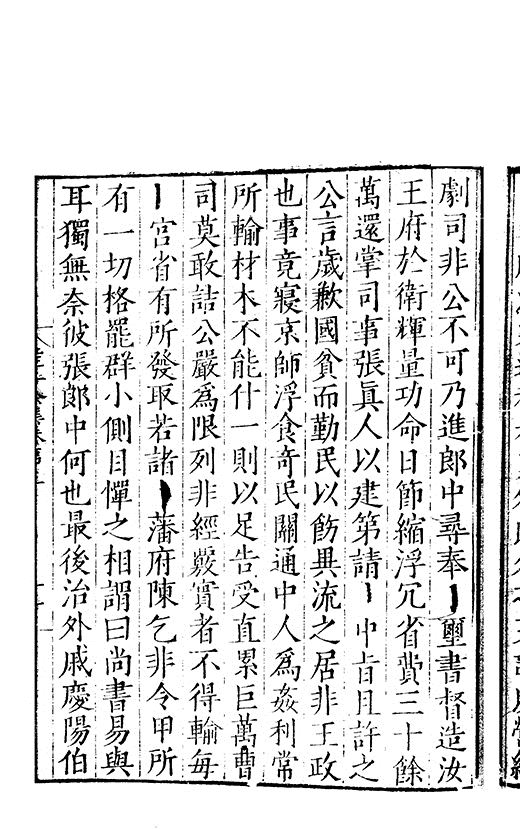 劇司非公不可乃進郎中尋奉璽書督造汝
王府於衛輝量功命日節縮浮冗省費三十餘
萬還掌司事張眞人以建第請中旨且許之
公言歲歉國貧而勤民以飭異流之居非王政
也事竟寢京師浮食奇民關通中人爲姦利常
所輸材木不能什一則以足告受直累巨萬曹
司莫敢詰公嚴爲限列非經覈實者不得輸每
宮省有所發取若諸藩府陳乞非令甲所
有一切格罷群小側目憚之相謂曰尚書易與
耳獨無奈彼張郎中何也最後治外戚慶陽伯